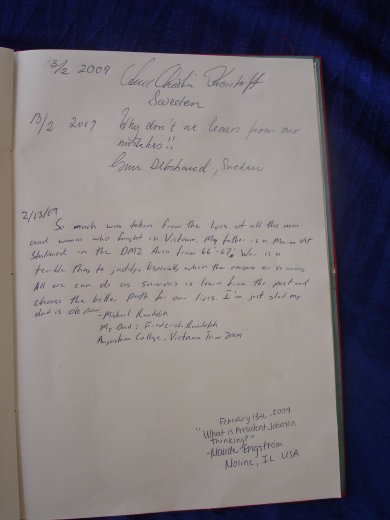 13/2 2009
Sweden
13/2 2009 Why don't we learn from our
mistakes!!
Sweden
2/13/09
So much was taken from the lives of all the men
and women who fought in Vietnam. My father is a Marine Vet
stationed in the DMZ Area from 66'-67'. War is a
terrible thing to justify. Especially when the reasons are so wrong.
All we can do as survivors is learn from the past and
choose the better path for our lives. I'm just glad my
dad is ok now.
- Michael Randolph
My Dad: Frederick Randolph
Augustana College, Vietnam Term 2009
February 13th, 2009
"What is President Johnson
thinking?"
- Maude Engstrom
Moline, IL USA